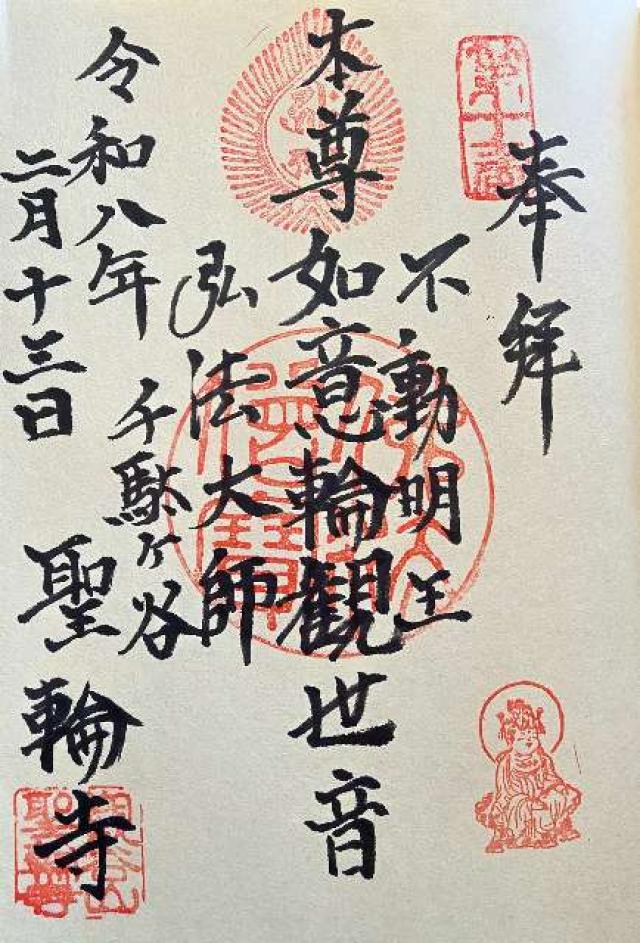 奉拝
不動明王
本尊如意輪観世音
弘法大師
千駄ヶ谷
令和八年
二月十三日
聖輪寺